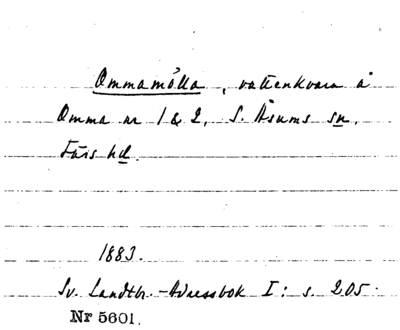 Ommamölla, vattenkvarn å
Omma nr 1 & 2, S. Åsums sn,
Färs hd.
1883.
Sv. Landtbr.-Adressbok I: s. 205.
Nr 5601.